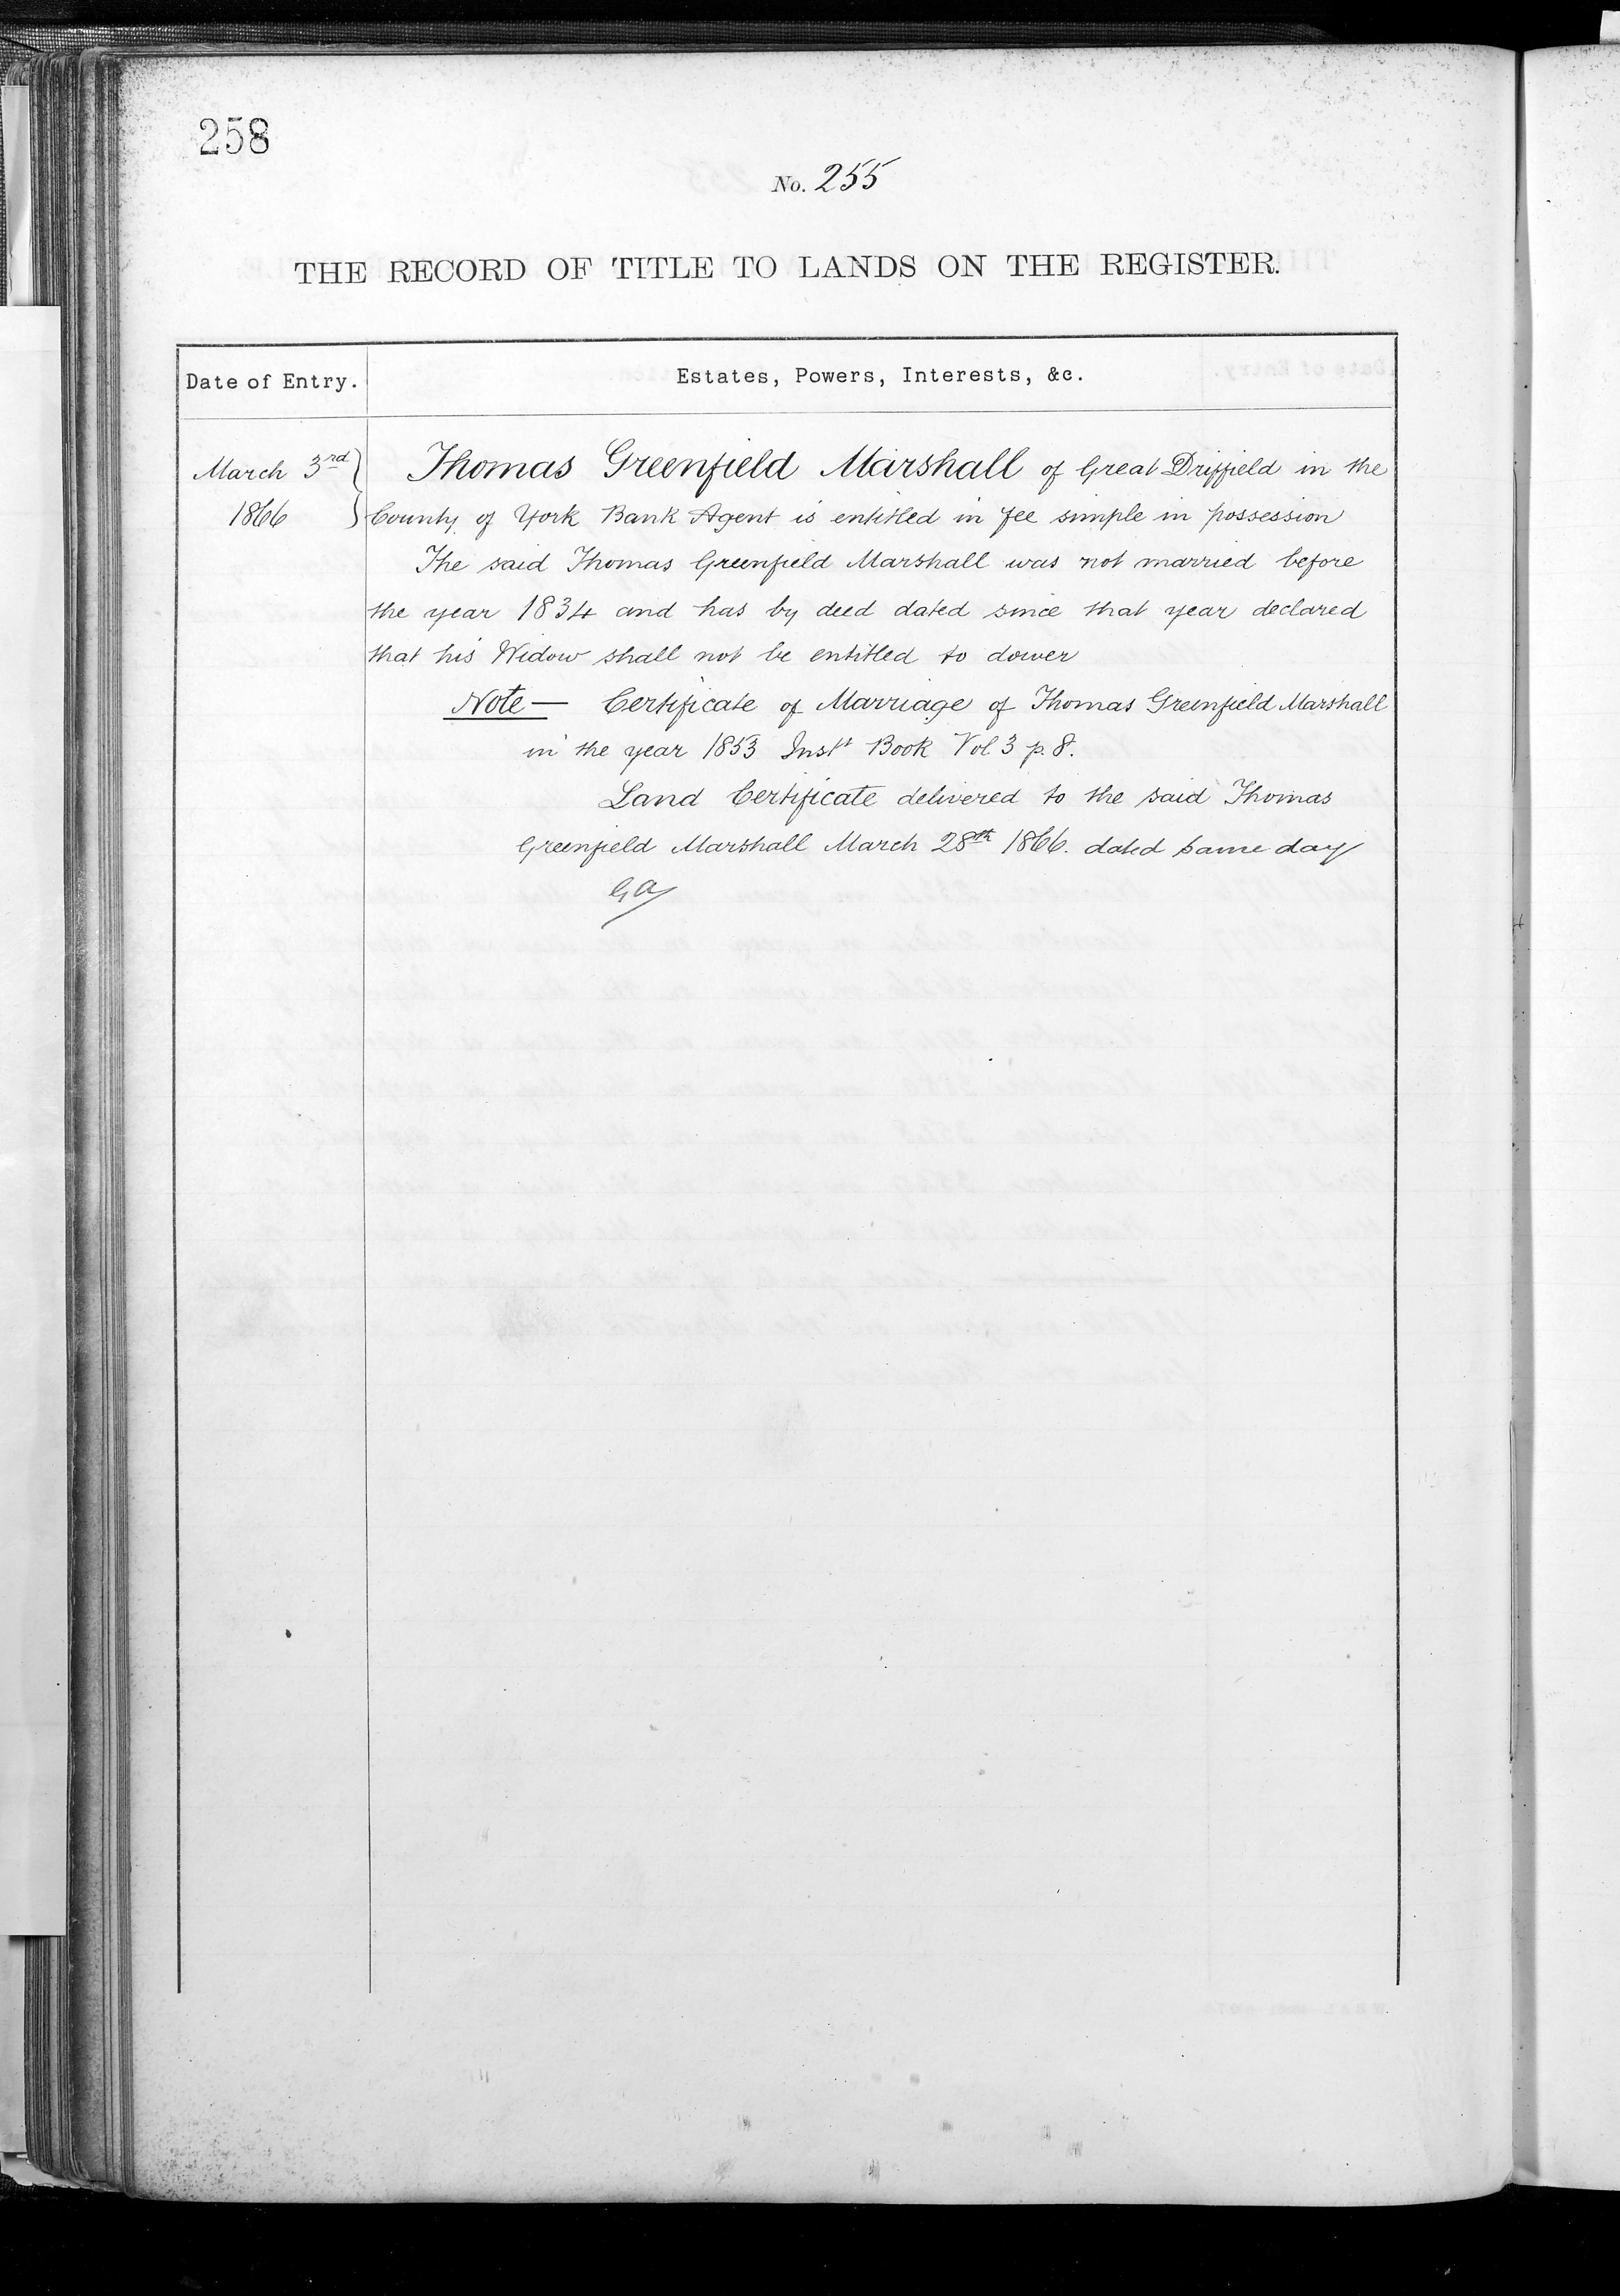 258
No. 255
THE RECORD OF TITLE TO LANDS ON THE REGISTER.
Date of Entry.
Estates, Powers, Interests, &c.
March 3rd
1866
Thomas Greenfield Marshall of Great Driffield in the
County of York Bank Agent is entitled in fee simple in possession
The said Thomas Greenfield Marshall was not married before
the year 1834 and has by deed dated since that year declared
that his Widow shall not be entitled to dower
Note — Certificate of Marriage of Thomas Greenfield Marshall
in the year 1853 Inst Book Vol 3 p. 8.
Land Certificate delivered to the said Thomas
Greenfield Marshall March 28th 1866. dated same day
GA